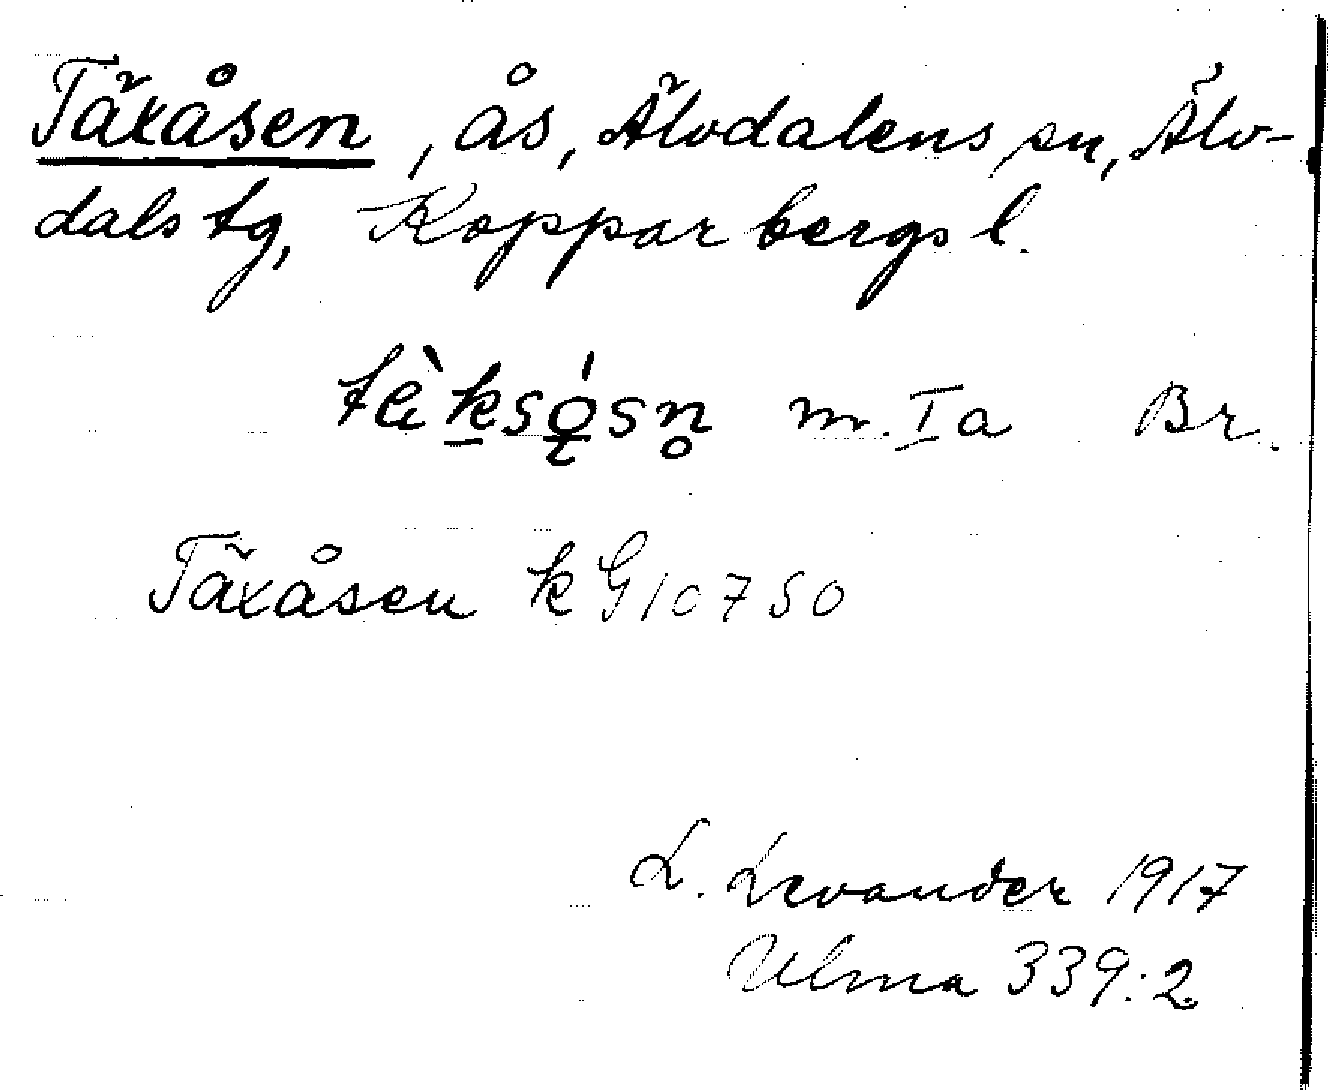 Täxåsen, ås, Älvdalens sn, Älv-
dals tg, Kopparbergs l.
tèksǫ́sn̥ m. Ia Br.
Täxåsen k G10750
L. Levander 1917
Ulma 339:2